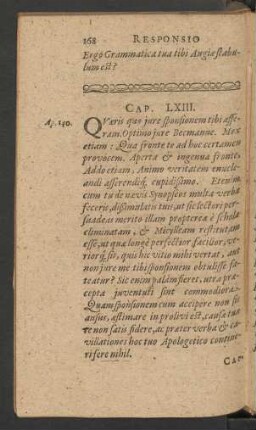 168 RESPONSIO
Ergo Grammatica tua tibi Augiæ stabu-
lum est?
CAP. LXIII.
Ap. 140.
QVeris quo jure sponsionem tibi offe-
ram. Optimo jure Becmanne. Mox
etiam: Qua fronte te ad hoc certamen
provocem. Aperta & ingenua fronte.
Addo etiam, Animo veritatem enucle-
andi asserendiq; cupidissimo. Etenim
cum tu de nævis Synopseos multa verba
feceris, dissimulatis tuis, ut sic lectori per-
suadeas merito illam propterea è scholis
eliminatam, & Micylleam restitutam
esse, ut quæ longè perfectior facilior, ve-
riorq; sit, quis hic vitio mihi vertat, aut
non jure me tibi sponsionem obtulisse fa-
teatur? Sic enim palam fieret, utra præ-
cepta juventuti sint commodiora.
Quam sponsionem cum accipere non sis
ausus, æstimare in proclivi est, causa tua
te non satis fidere, ac præter verba & ca-
villationes hoc tuo Apologetico contine-
ri ferè nihil.
CAP.